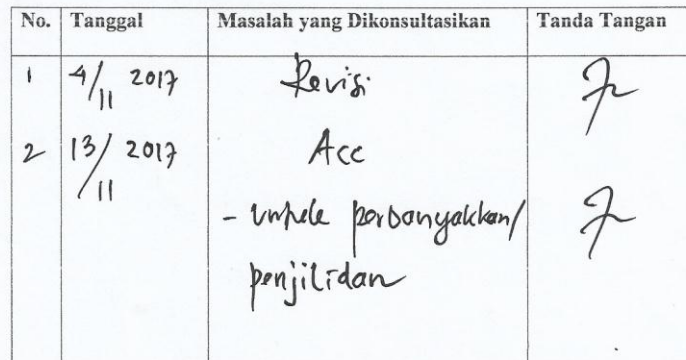 No. Tanggal Masalah yang Dikonsultasikan Tanda Tangan
1 4/11 2017 Revisi
2 13/11 2017 Acc
- untuk perbanyakkan/
penjilidan